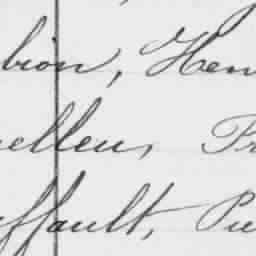 bion, Hen
elleu, Pr
ffault, Pie